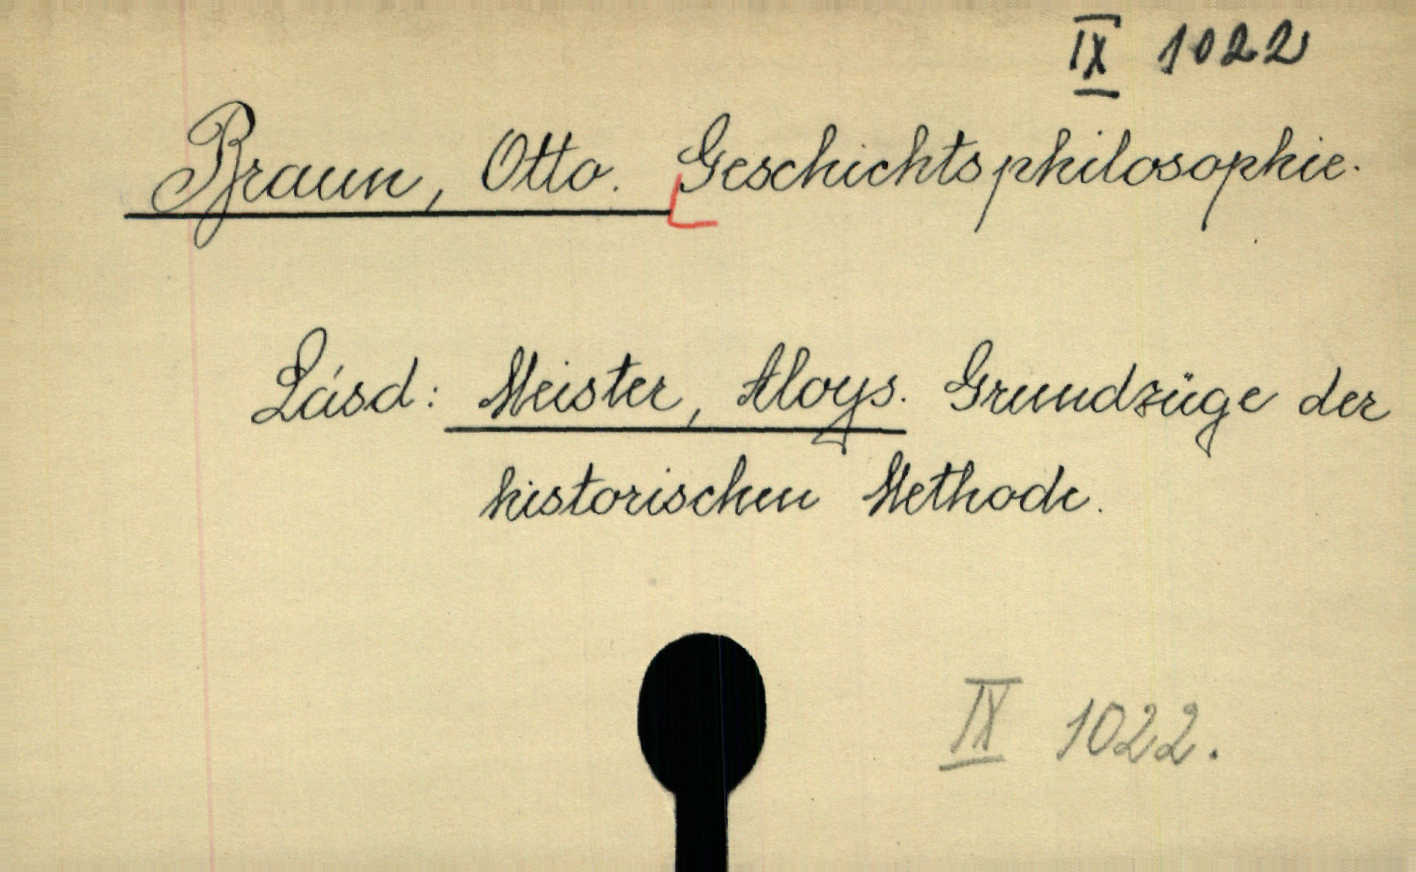 IX 1022
Braun, Otto. Geschichtsphilosophie.
Lásd: Meister, Aloys. Grundzüge der
historischen Methode.
IX 1022.